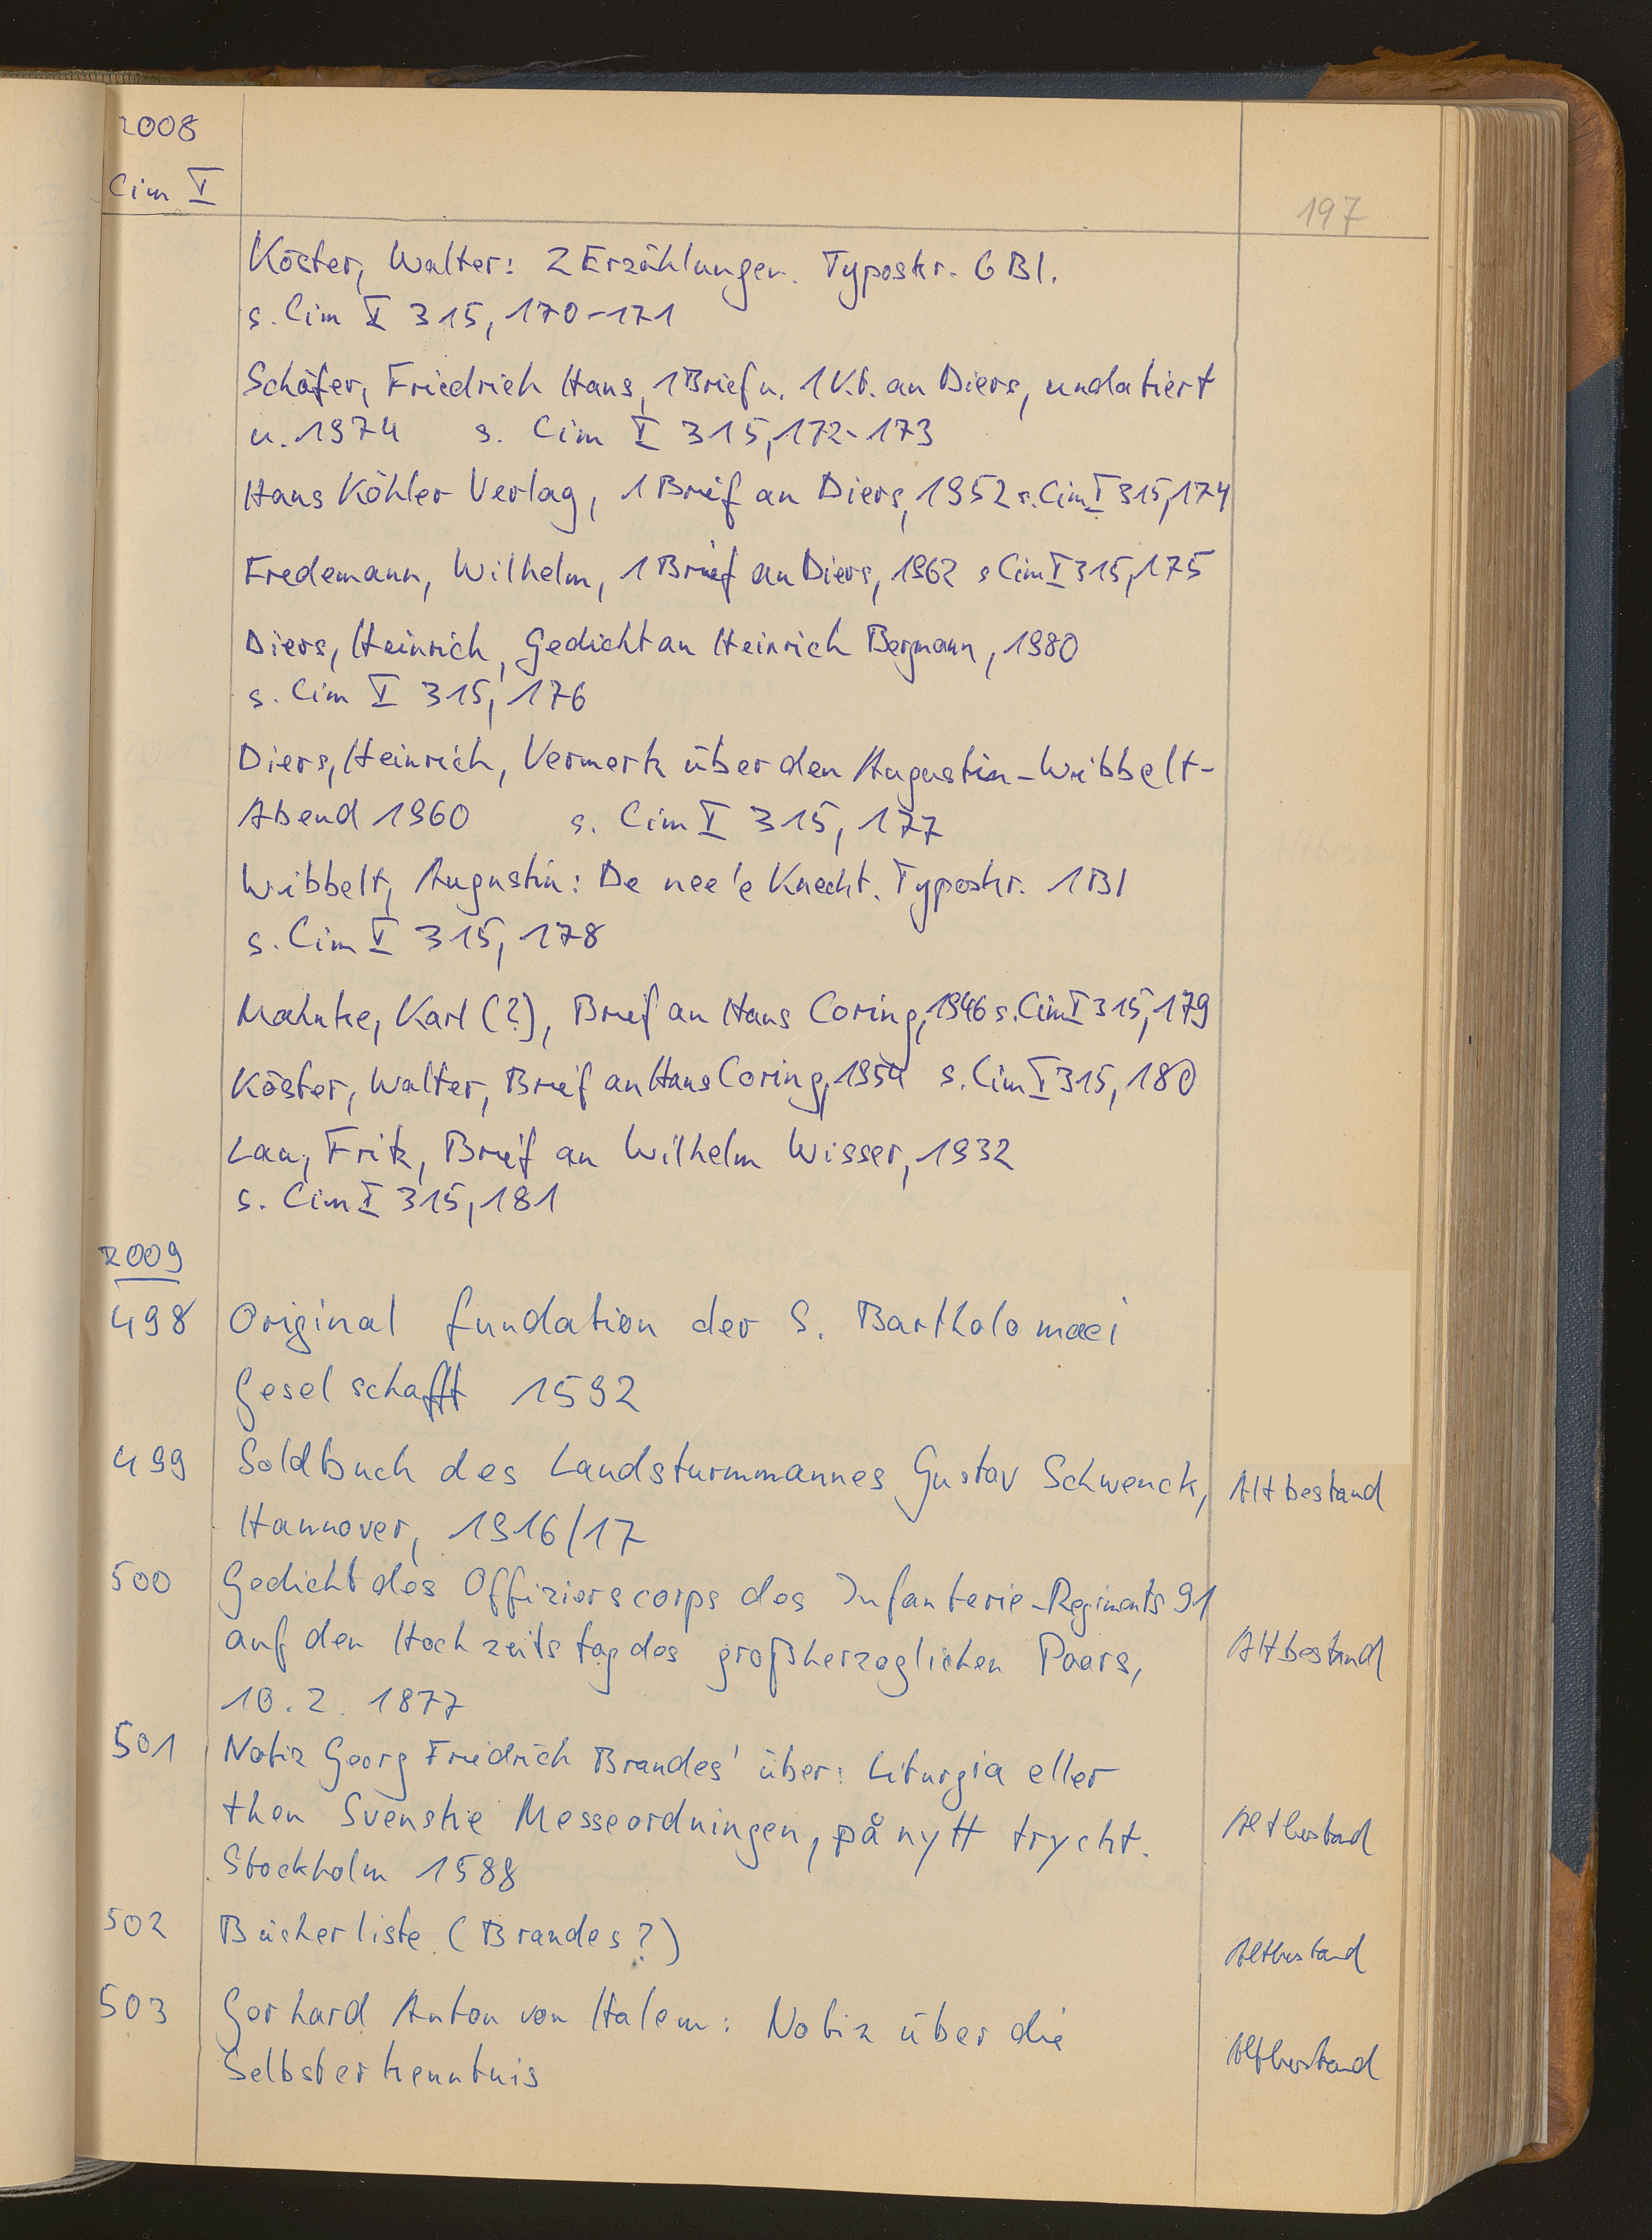 2008
Cim I
197
Köster, Walter: 2 Erzählungen. Typoskr. 6 Bl.
s. Cim I 315, 170-171
Schäfer, Friedrich Hans, 1 Brief u. 1 V.K. an Diers, undatiert
u. 1974 s. Cim I 315, 172-173
Hans Köhler Verlag, 1 Brief an Diers, 1952 s. Cim I 315, 174
Fredemann, Wilhelm, 1 Brief an Diers, 1962 s Cim I 315, 175
Diers, Heinrich, Gedicht an Heinrich Bergmann, 1980
s. Cim I 315, 176
Diers, Heinrich, Vermerk über den Augustin-Wibbelt-
Abend 1960 s. Cim I 315, 177
Wibbelt, Augustin: De nee'e Knecht. Typoskr. 1 Bl
s. Cim I 315, 178
Mahnke, Karl (?), Brief an Hans Coring, 1946 s. Cim I 315, 179
Köster, Walter, Brief an Hans Coring, 1954 s. Cim I 315, 180
Lau, Fritz, Brief an Wilhelm Wisser, 1932
s. Cim I 315, 181
2009
498 Original fundation der S. Bartholomaei
Geselschafft 1592
499 Soldbuch des Landsturmmannes Gustav Schwenck, Altbestand
Hannover, 1916/17
500 Gedicht des Offizierscorps des Infanterie-Regiments 91
auf den Hochzeitstag des großherzoglichen Paars, Altbestand
10. 2. 1877
501 Notiz Georg Friedrich Brandes' über: Liturgia eller
then Svenske Messeordningen, på nytt tryckt. Altbestand
Stockholm 1588
502 Bücherliste (Brandes?) Altbestand
503 Gerhard Anton von Halem: Notiz über die
Selbsterkenntnis Altbestand